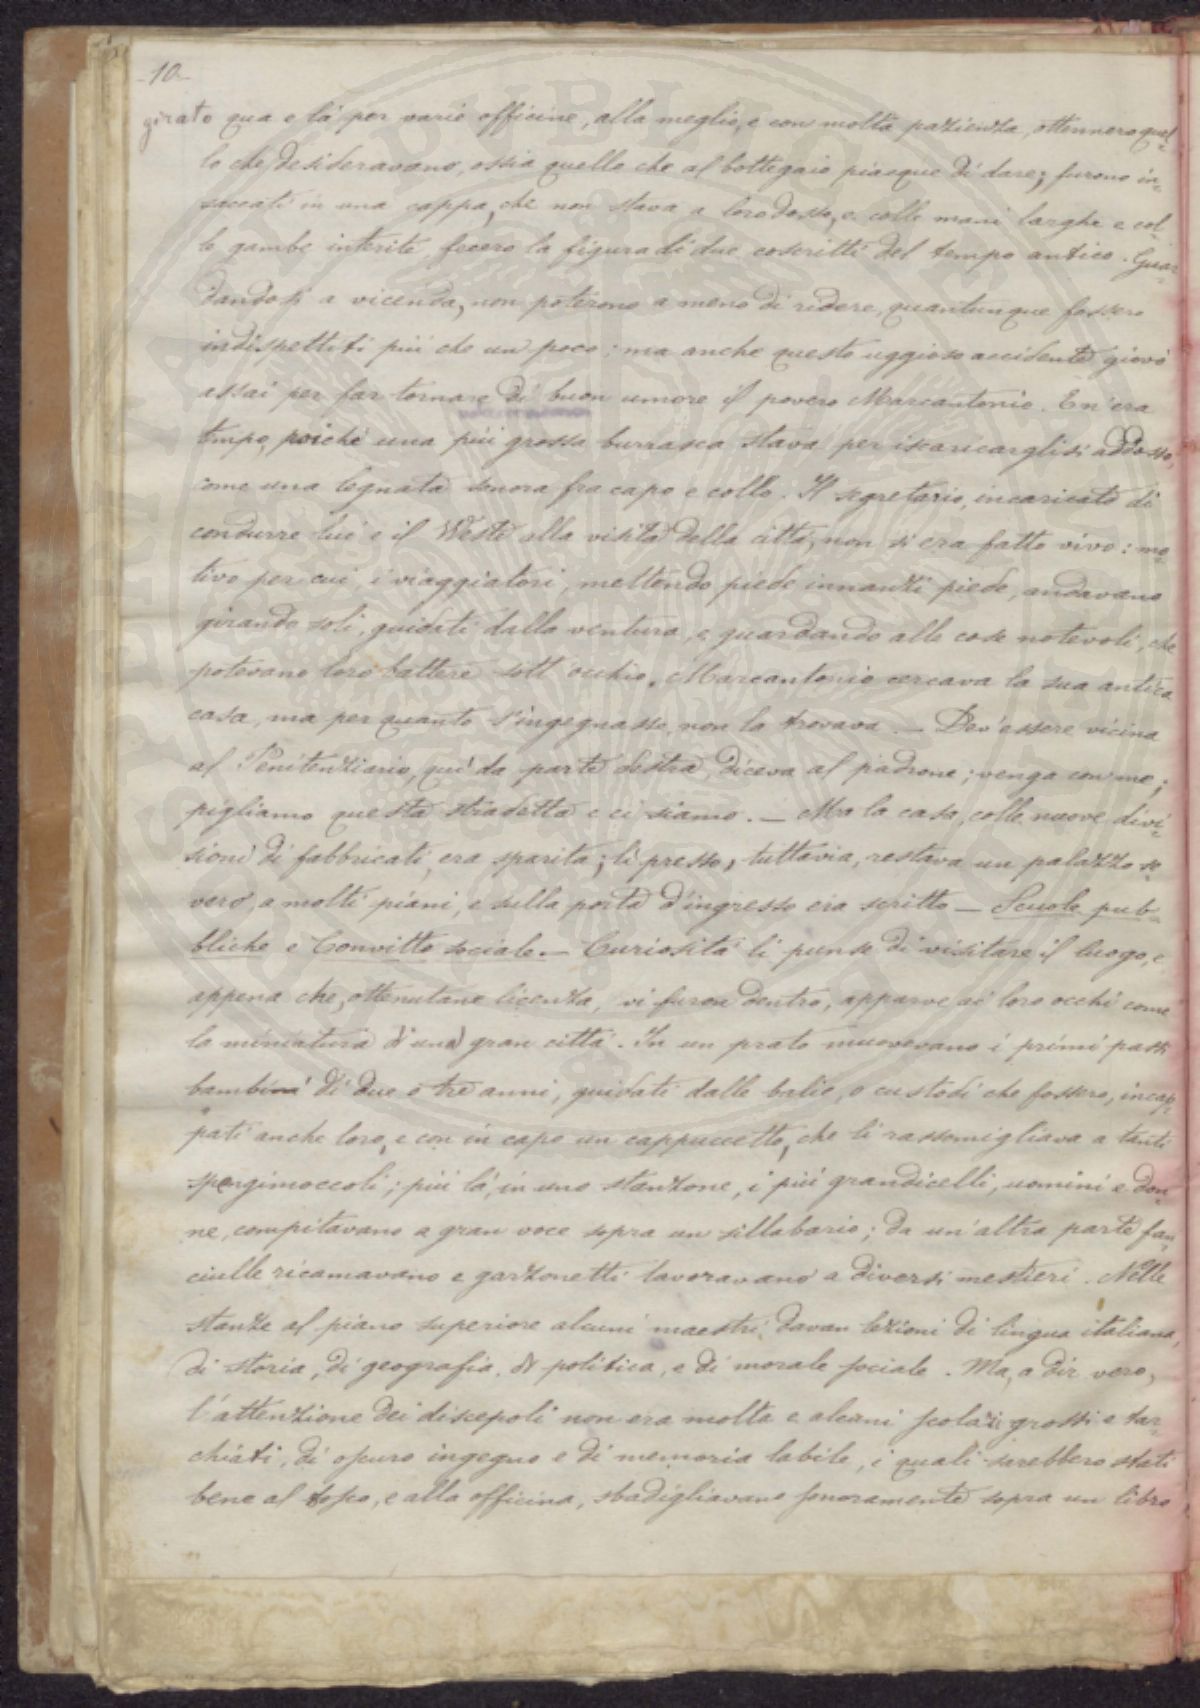 -10-
girato qua e là per varie officine, alla meglio, e con molta pazienza, ottennero quel=
lo che desideravano, ossia quello che al bottegaio piacque di dare; furono in=
saccati in una cappa, che non stava a loro dosso, e colle mani larghe e col
le gambe interite, fecero la figura di due coscritti del tempo antico. Guar
dandosi a vicenda, non poterono a meno di ridere, quantunque fossero
indispettiti più che un poco; ma anche questo uggioso accidente giovò
assai per far tornare di buon umore il povero Marcantonio. E n'era
tempo, poichè una più grossa burrasca stava per iscaricarglisi addosso,
come una legnata sonora fra capo e collo. Il segretario, incaricato di
condurre lui e il Weste alla visita della città, non si era fatto vivo: mo=
tivo per cui, i viaggiatori, mettendo piede innanzi piede, andavano
girando soli, guidati dalla ventura, e guardando alle cose notevoli, che
potevano loro battere sott'occhio. Marcantonio cercava la sua antica
casa, ma per quanto s'ingegnasse, non la trovava. — Dev'essere vicina
al Penitenziario, quì da parte destra, diceva al padrone; venga con me;
pigliamo questa stradetta e ci siamo. — Ma la casa, colle nuove divi=
sioni di fabbricati, era sparita; lì presso, tuttavia, restava un palazzo se
vero, a molti piani, e sulla porta d'ingresso era scritto — Scuole pub=
bliche e Convitto sociale. — Curiosità li punse di visitare il luogo, e
appena che, ottenutane licenza, vi furon dentro, apparve ai loro occhi come
la miniatura di una gran città. In un prato muovevano i primi passi
bambini di due o tre anni, guidati dalle balie, o custodi che fossero, incap=
pati anche loro, e con in capo un cappuccetto, che li rassomigliava a tanti
spegnimoccoli; più là, in uno stanzone, i più grandicelli, uomini e don=
ne, compitavano a gran voce sopra un sillabario; da un'altra parte fan
ciulle ricamavano e garzonetti lavoravano a diversi mestieri. Nelle
stanze al piano superiore alcuni maestri davan lezioni di lingua italiana,
di storia, di geografia, di politica, e di morale sociale. Ma, a dir vero,
l'attenzione dei discepoli non era molta e alcuni scolari grossi e tar=
chiati, di oscuro ingegno e di memoria labile, i quali sarebbero stati
bene al tosco, e alla officina, sbadigliavano sonoramente sopra un libro